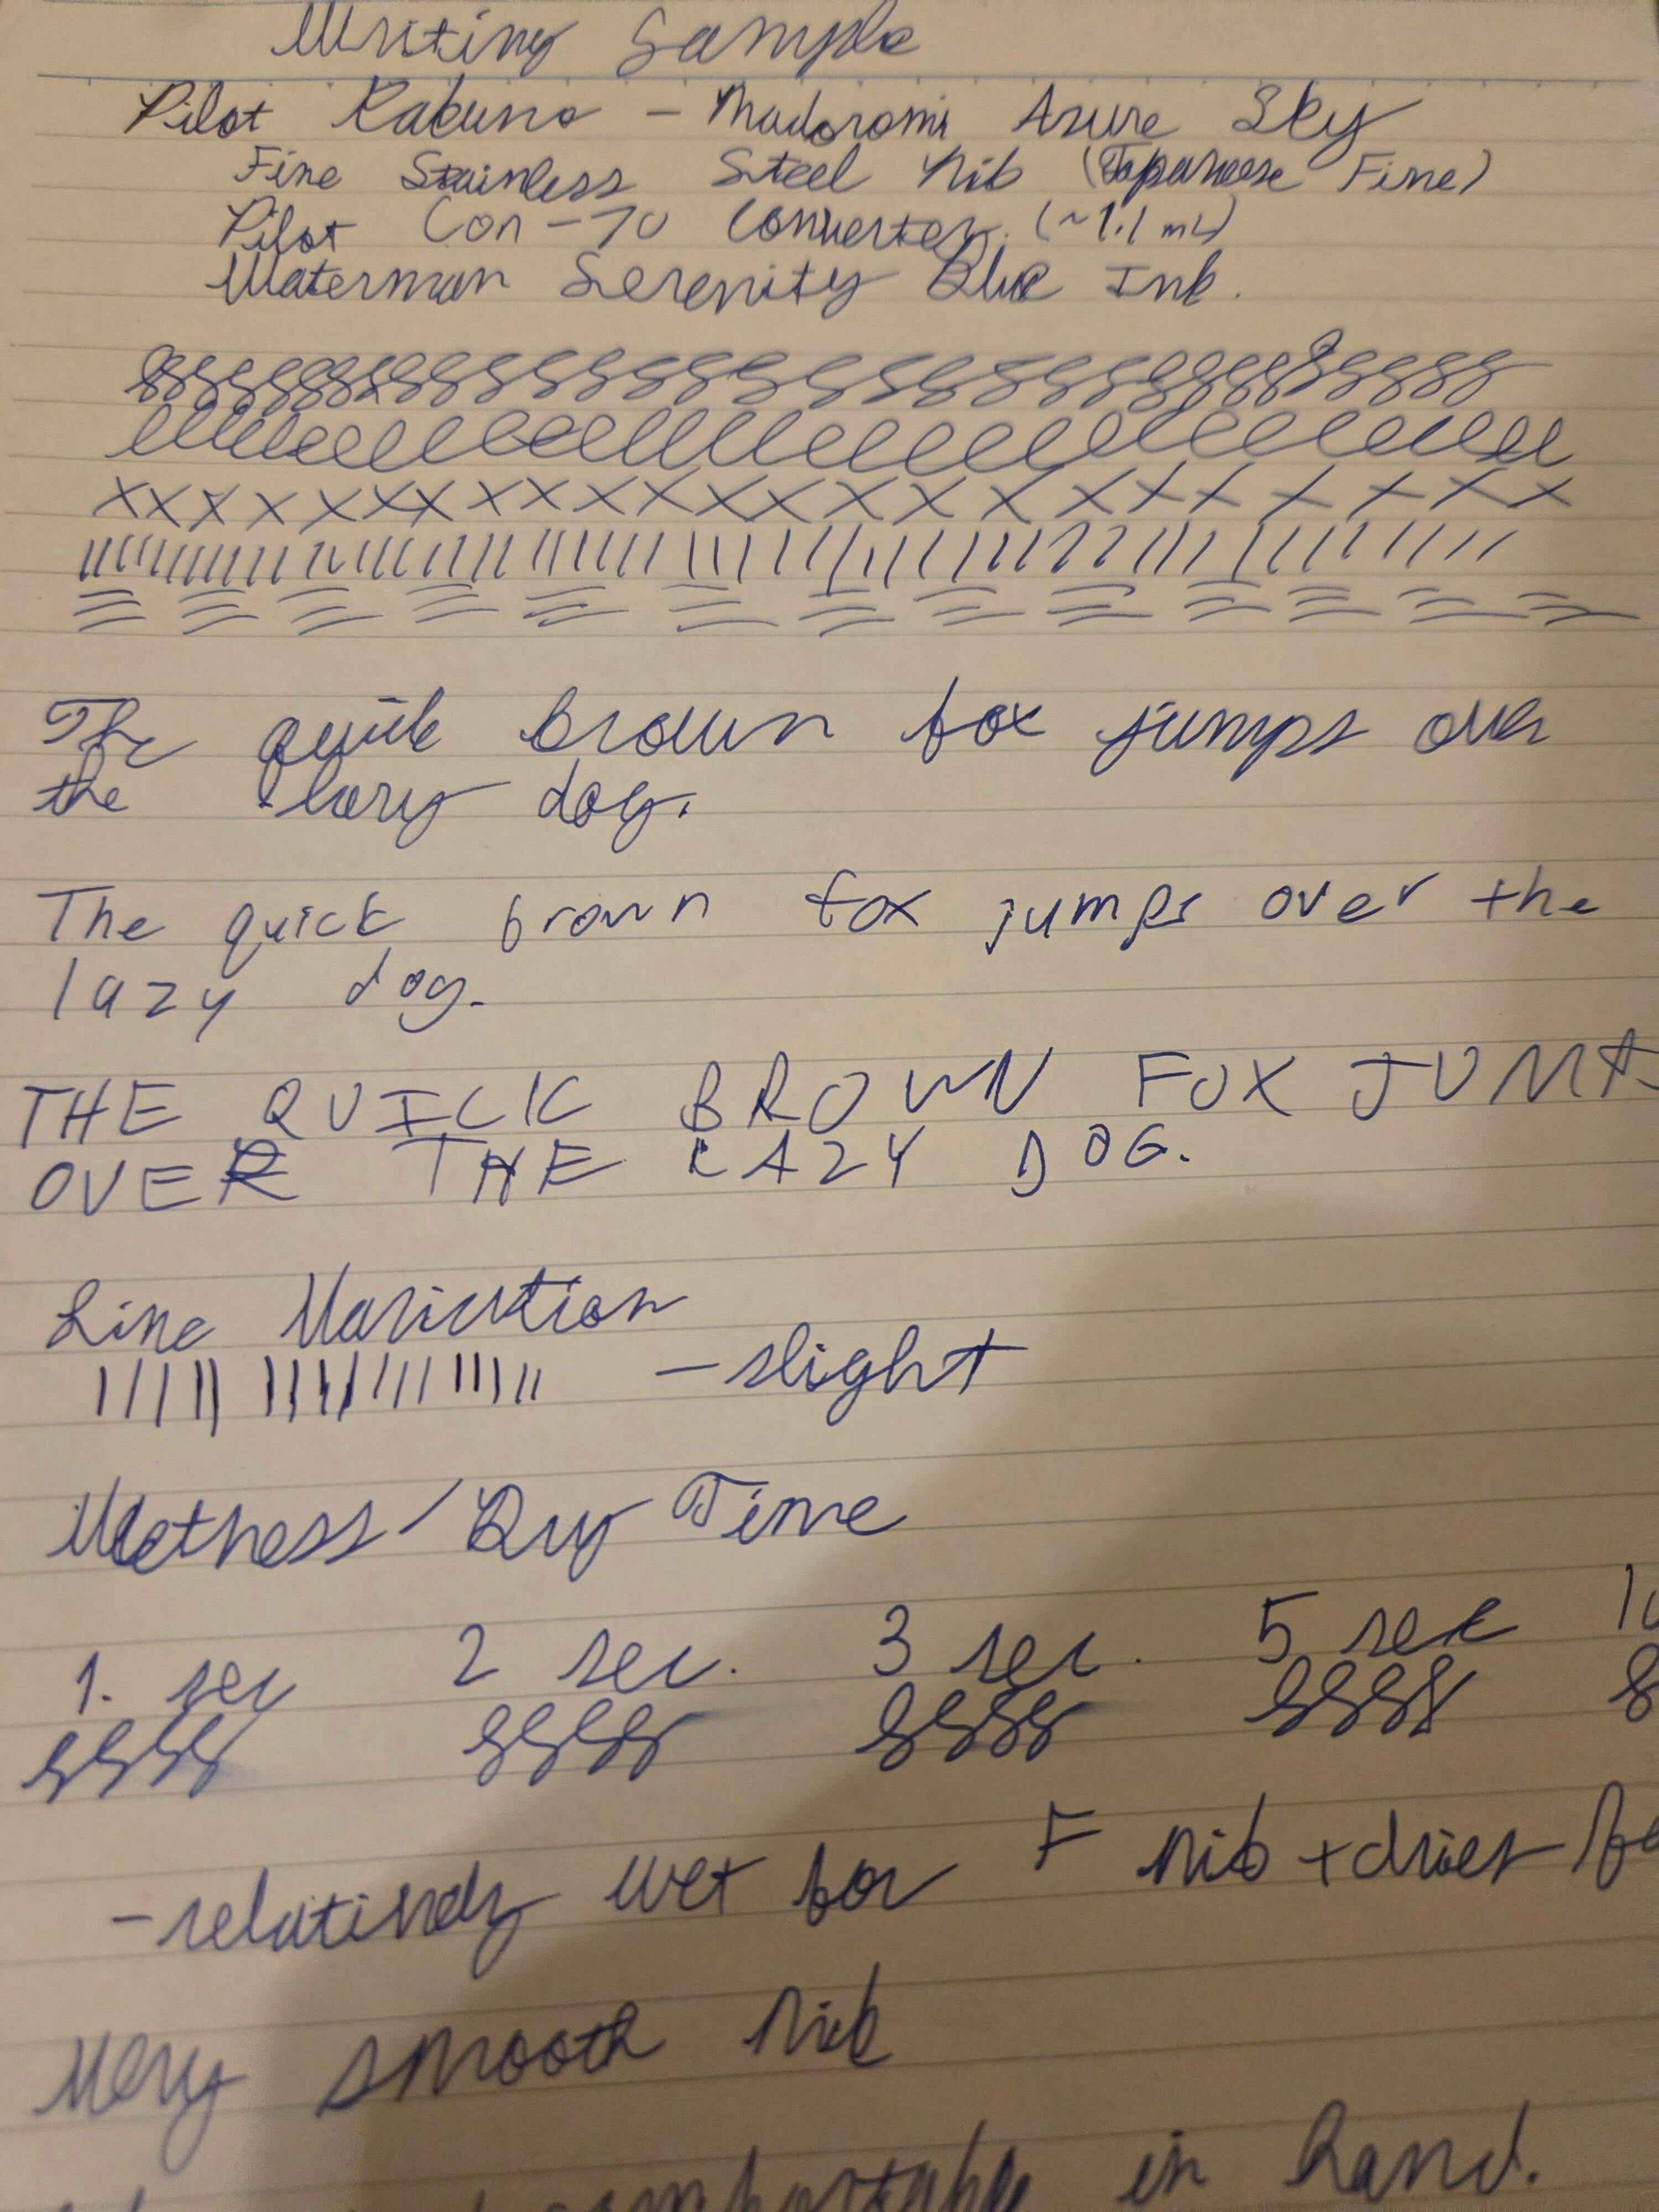 Writing Sample
Pilot Kakuno - Madoromi Azure Sky
Fine Stainless Steel Nib (Japanese Fine)
Pilot Con-70 Converter. (~1.1 mL)
Waterman Serenity Blue Ink.
The quick brown fox jumps over
the lazy dog.
The quick brown fox jumps over the
lazy dog.
THE QUICK BROWN FOX JUMPS
OVER THE LAZY DOG.
Line Variation
- slight
Wetness/Dry Time
1. sec 2 sec. 3 sec. 5 sec
- relatively wet for F nib + dries
Very smooth nib
comfortable in hand.